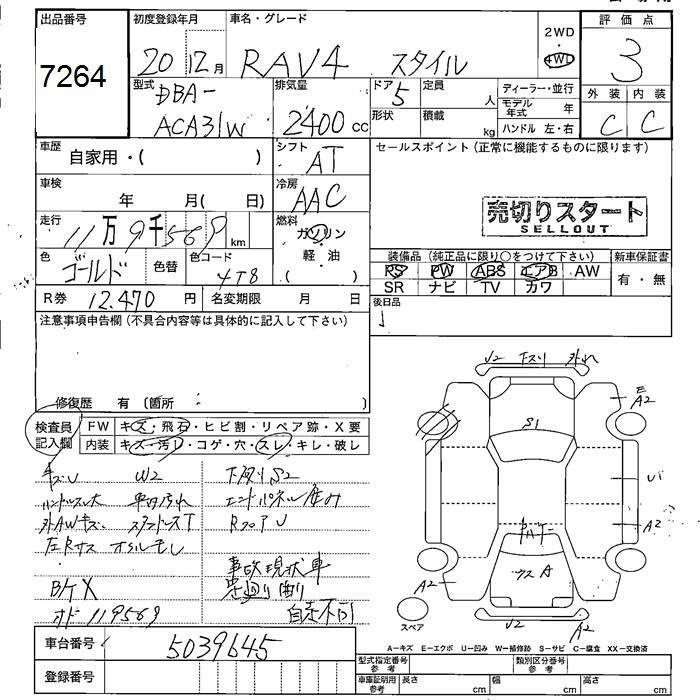 出品番号
7264
初度登録年月
20 12月
車名・グレード
RAV4 スタイル
2WD
・
4WD
評価点
3
外装 内装
C C
型式
DBA-
ACA31W
排気量
2400 cc
ドア 5
定員 人
形状
積載 kg
ディーラー・並行
モデル年式 年
ハンドル 左・右
車歴
自家用・( )
シフト
AT
セールスポイント(正常に機能するものに限ります)
車検
年 月( 日)
冷房
AAC
売切りスタート
SELLOUT
走行
11万9千569 km
燃料
ガソリン
・
軽・油
( )
色
ゴールド
色替
色コード
4T8
装備品(純正品に限り○をつけて下さい)
新車保証書
PS PW ABS エアB AW
SR ナビ TV カワ
有・無
R券 12,470 円
名変期限 月 日
後日品
注意事項申告欄(不具合内容等は具体的に記入して下さい)
修復歴 有 〔箇所 〕
検査員記入欄
FW キズ・飛石・ヒビ割・リペア跡・X要
内装 キズ・汚レ・コゲ・穴・スレ・キレ・破レ
キズU W2 下廻りS2
ハンドルスレ大 車内汚れ エンドパネル歪み
外AWキズ RフロアU
事故現状車
B/ケX 足廻り曲り
オド 119569 自走不可
J2 下スリ 外れ
E
A2
S1
U1
A2
ウスA
A2
スペア
J2
A2
A=キズ E=エクボ U=凹み W=補修跡 S=サビ C=腐食 XX=交換済
車台番号
5039645
登録番号
型式指定番号 参考
類別区分番号 参考
車庫証明用 参考
長さ cm
幅 cm
高さ cm